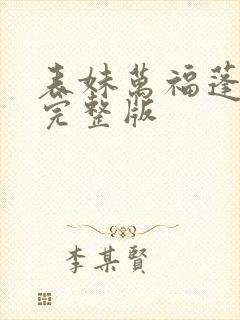 表妹萬福蓬
完整版
李某賢